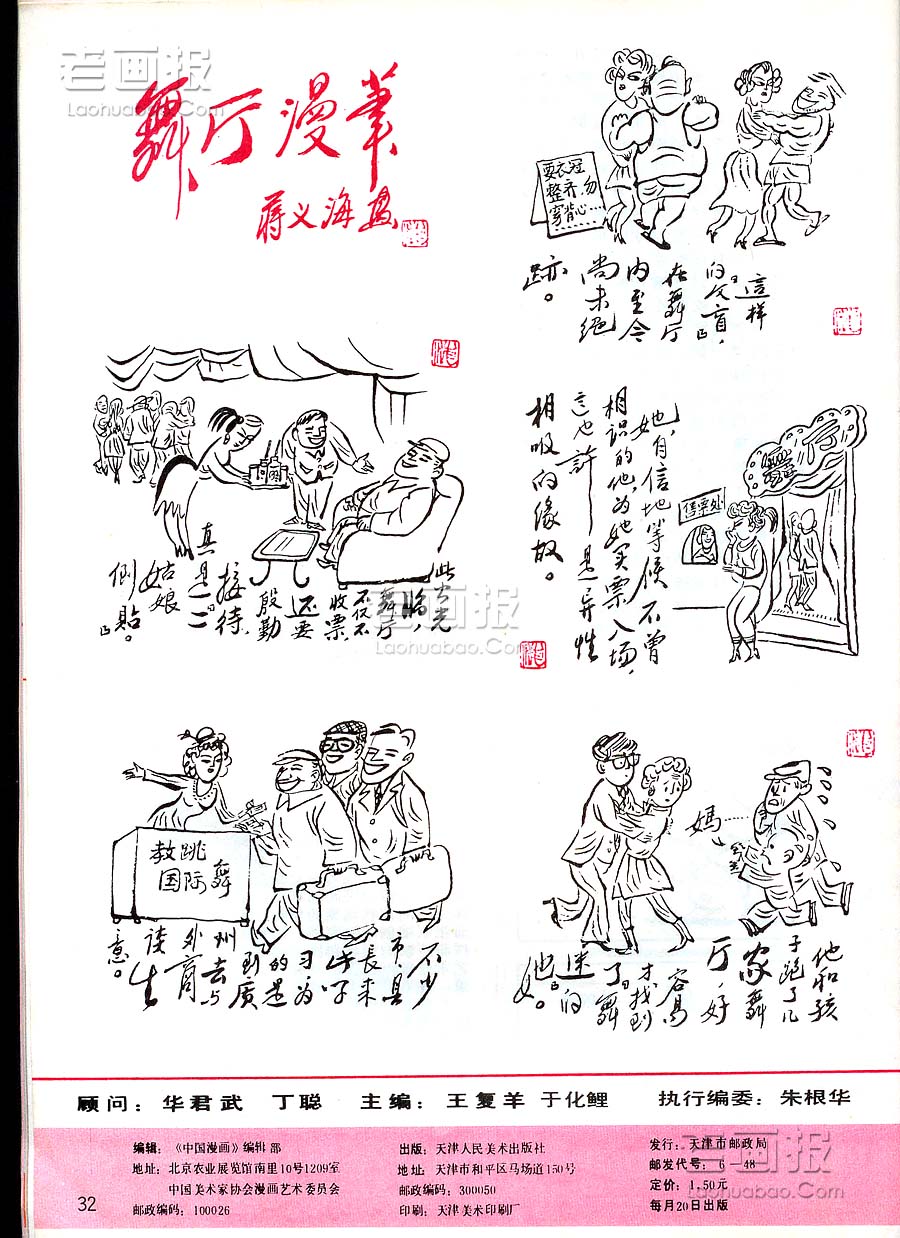 老画报
Laohuabao.Com
舞厅漫笔
蒋义海画
要衣冠
整齐，勿
穿背心……
這样
的“文盲”，
在舞厅
内至今
尚未绝
跡。
此公光
临，舞厅
不仅不
收票，
还要
殷勤
接待，
真是“
姑娘
倒貼”。
她，自信地等候不曾
相识的他，为她买票入场，
這也許是異性
相吸的缘故。
售票处
老画报
Laohuabao.Com
教跳
国际舞
不少
市、县
长来
此学
习，为
的是
到廣
州去与
外商
谈生
意。
媽
他和孩
子跑了几
家舞
厅，好
容易
才找到
了“舞
迷”的
她。
顾问：华君武 丁聪 主编：王复羊 于化鲤 执行编委：朱根华
编辑：《中国漫画》编辑部
地址：北京农业展览馆南里10号1209室
中国美术家协会漫画艺术委员会
邮政编码：100026
出版：天津人民美术出版社
地址：天津市和平区马场道150号
邮政编码：300050
印刷：天津美术印刷厂
发行：天津市邮政局
邮发代号：6—48
定价：1.50元
每月20日出版
老画报
Laohuabao.Com
32